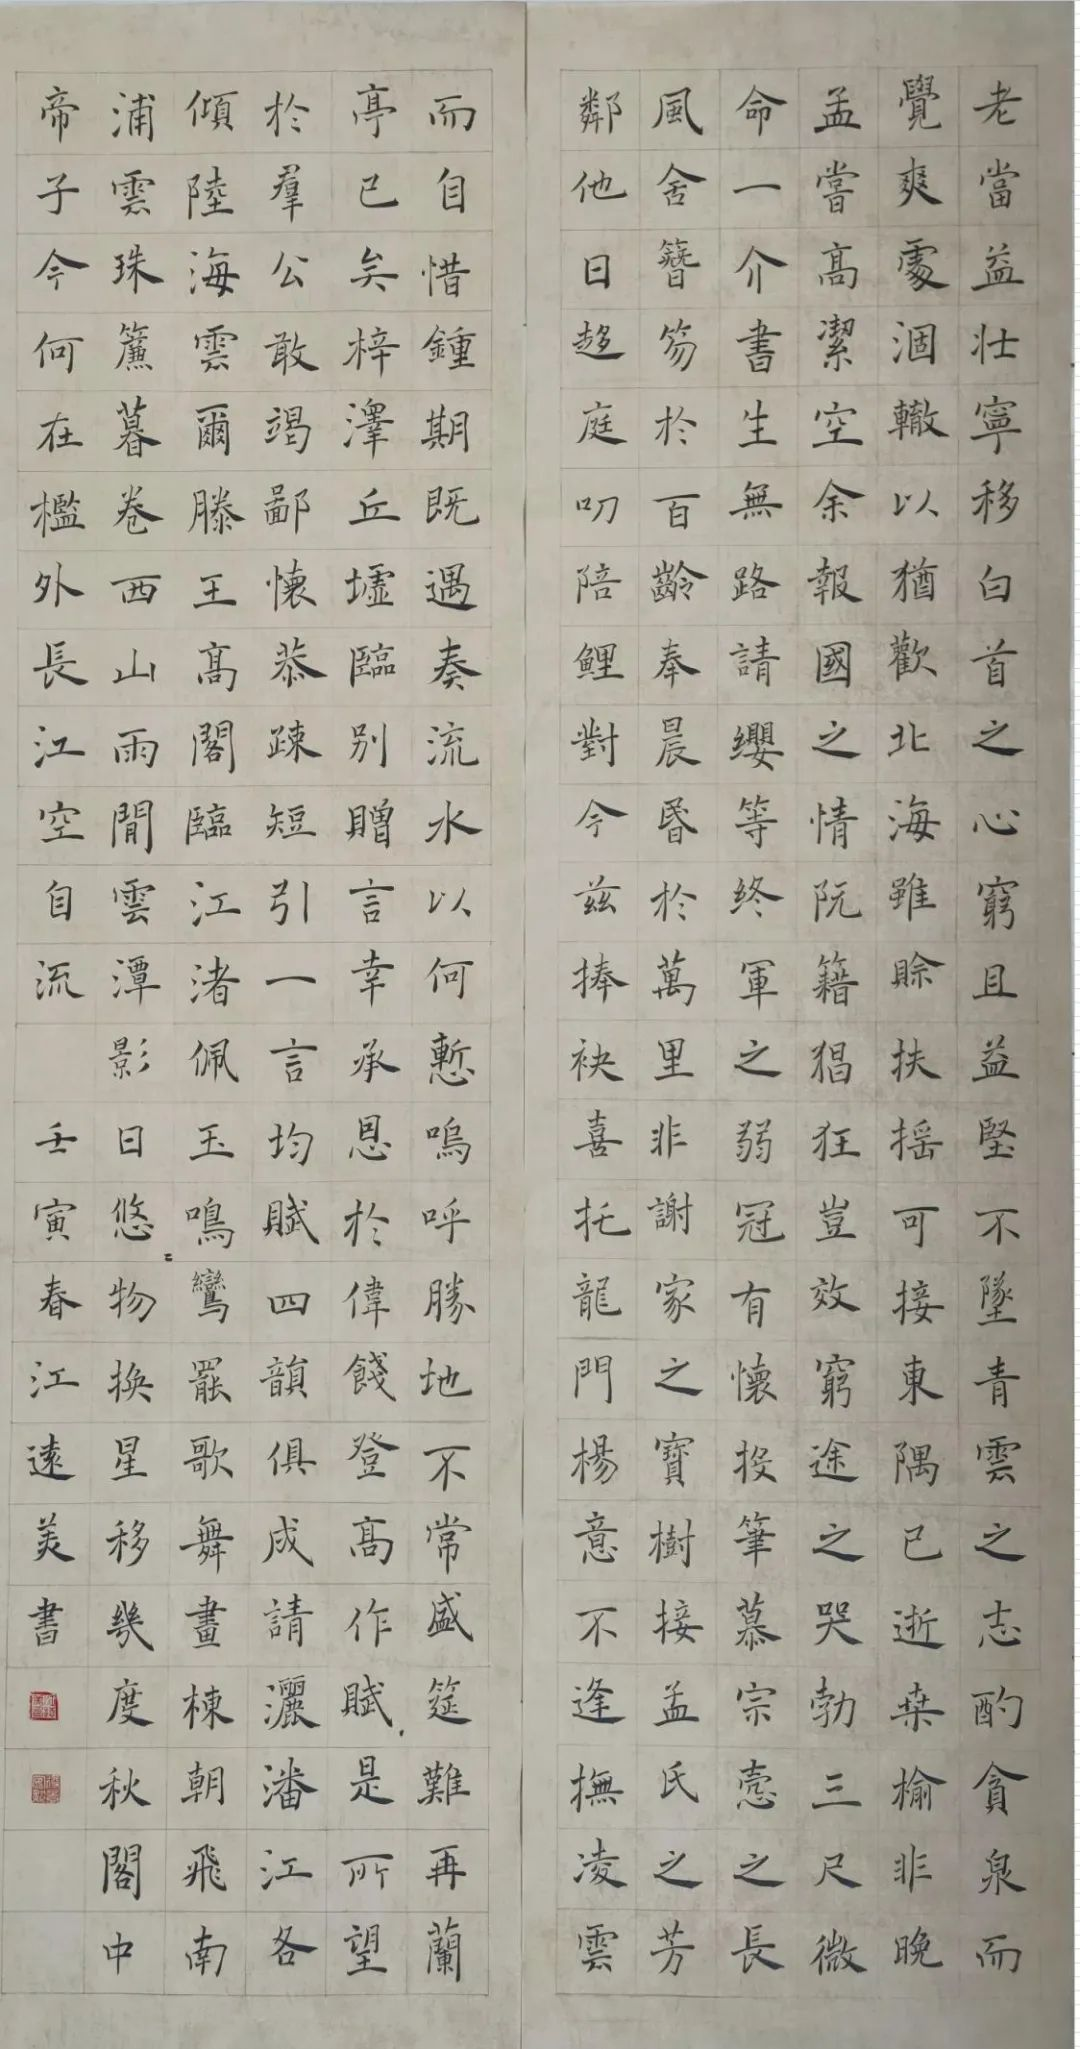 老當益壯寧移白首之心窮且益堅不墜青雲之志酌貪泉而
覺爽處涸轍以猶歡北海雖賒扶搖可接東隅已逝桒榆非晚
孟嘗高潔空余報國之情阮籍猖狂豈效窮途之哭勃三尺微
命一介書生無路請纓等終軍之弱冠有懷投筆慕宗愨之長
風舍簪笏於百齡奉晨昏於萬里非謝家之寶樹接孟氏之芳
鄰他日趍庭叨陪鯉對今兹捧袂喜托龍門楊意不逢撫凌雲
而自惜鍾期既遇奏流水以何慙嗚呼勝地不常盛筵難再蘭
亭已矣梓澤丘墟臨別贈言幸承恩於偉餞登高作賦是所望
於羣公敢竭鄙懷恭疎短引一言均賦四韻俱成請灑潘江各
傾陸海雲爾滕王高閣臨江渚佩玉鳴鸞罷歌舞畫棟朝飛南
浦雲珠簾暮卷西山雨閒雲潭影日悠物換星移幾度秋閣中
帝子今何在檻外長江空自流 壬寅春江遠美書